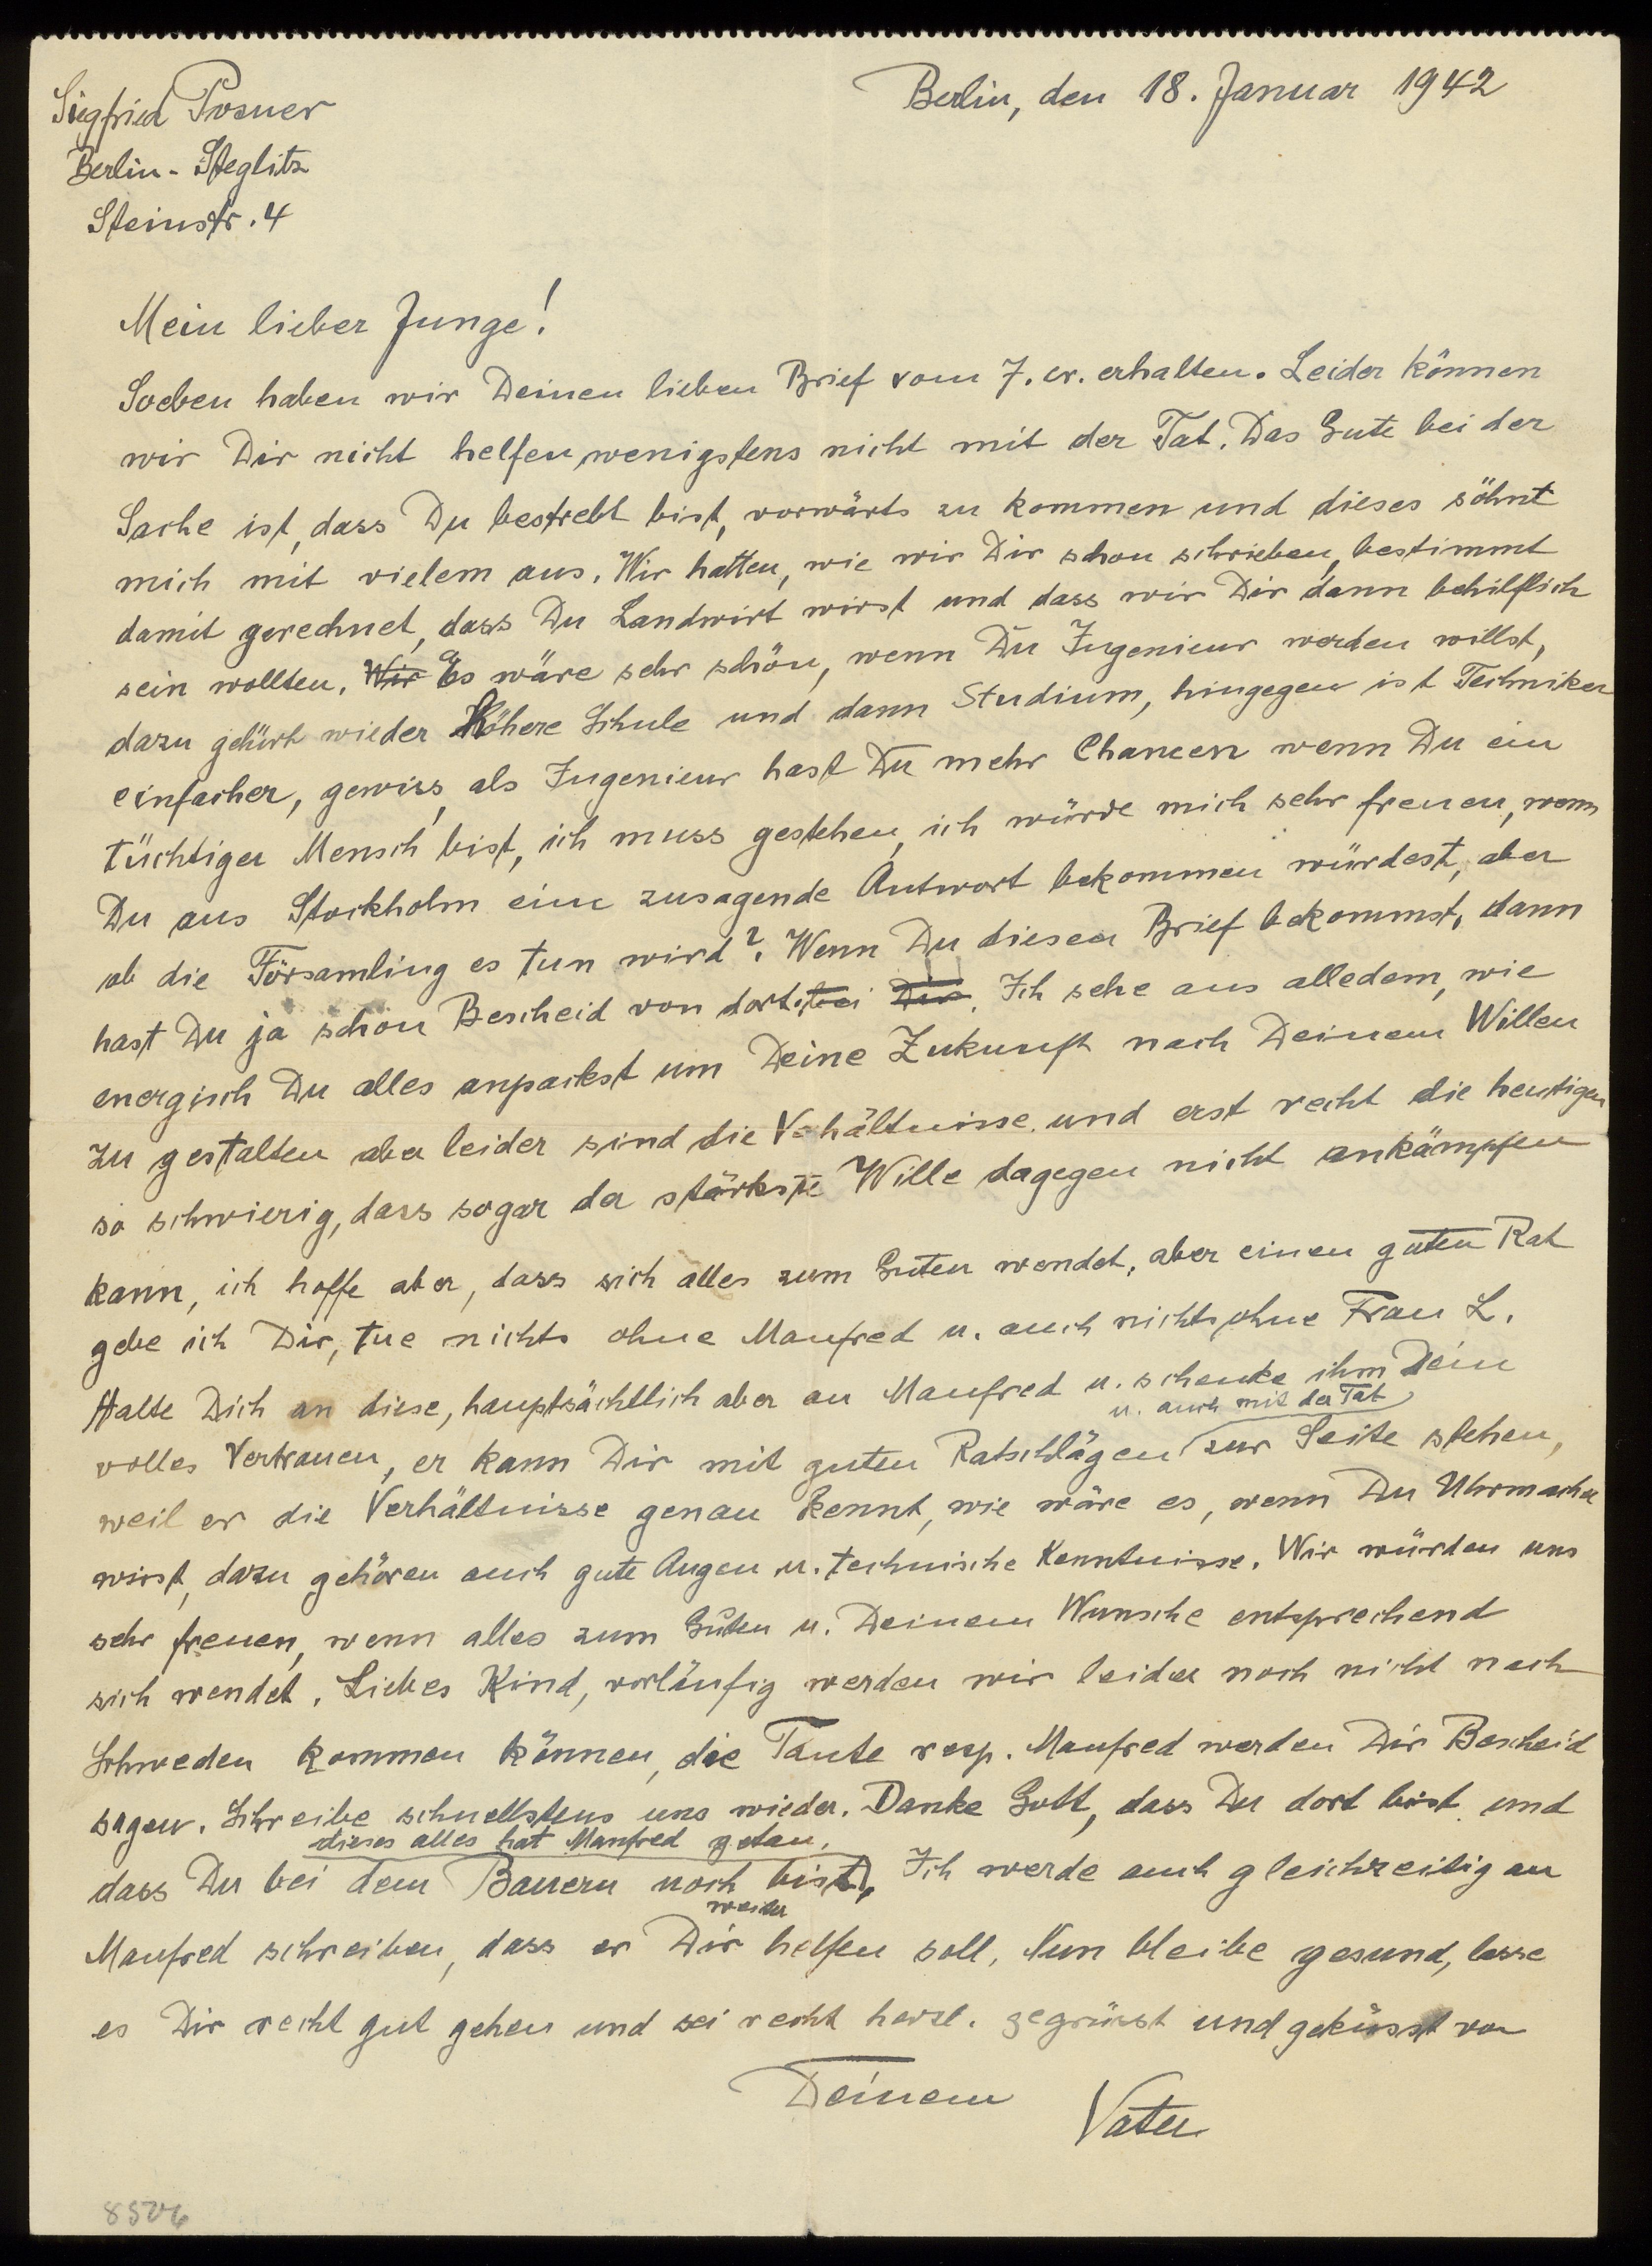 Siegfried Posner
Berlin, den 18. Januar 1942
Berlin-Steglitz
Steinstr. 4
Mein lieber Junge!
Soeben haben wir Deinen lieben Brief vom 7. cr. erhalten. Leider können
wir Dir nicht helfen, wenigstens nicht mit der Tat. Das Gute bei der
Sache ist, dass Du bestrebt bist, vorwärts zu kommen und dieses söhnt
mich mit vielem aus. Wir hatten, wie wir Dir schon schrieben, bestimmt
damit gerechnet, dass Du Landwirt wirst und dass wir Dir dann behilflich
sein wollten. Wir Es wäre sehr schön, wenn Du Ingenieur werden willst,
dazu gehört wieder Höhere Schule und dann Studium, hingegen ist Techniker
einfacher, gewiss, als Ingenieur hast Du mehr Chancen wenn Du ein
tüchtiger Mensch bist, ich muss gestehen, ich würde mich sehr freuen, wenn
Du aus Stockholm eine zusagende Antwort bekommen würdest, aber
ob die Församling es tun wird? Wenn Du diesen Brief bekommst, dann
hast Du ja schon Bescheid von dort. bei Dir. Ich sehe aus alledem, wie
energisch Du alles anpackst um Deine Zukunft nach Deinem Willen
zu gestalten aber leider sind die Verhältnisse und erst recht die heutigen
so schwierig, dass sogar der stärkste Wille dagegen nicht ankämpfen
kann, ich hoffe aber, dass sich alles zum Guten wendet, aber einen guten Rat
gebe ich Dir, tue nichts ohne Manfred u. auch nichts ohne Frau L.
Halte Dich an diese, hauptsächtlich aber an Manfred u. schenke ihm Dein
u. auch mit der Tat
volles Vertrauen, er kann Dir mit guten Ratschlägen zur Seite stehen,
weil er die Verhältnisse genau kennt, wie wäre es, wenn Du Uhrmacher
wirst, dazu gehören auch gute Augen u. technische Kenntnisse. Wir würden uns
sehr freuen, wenn alles zum Guten u. Deinem Wunsche entsprechend
sich wendet. Liebes Kind, vorläufig werden wir leider noch nicht nach
Schweden kommen können, die Tante resp. Manfred werden Dir Bescheid
sagen. Schreibe schnellstens uns wieder. Danke Gott, dass Du dort bist und
dieses alles hat Manfred getan.
dass Du bei dem Bauern noch bist, Ich werde auch gleichzeitig an
weiter
Manfred schreiben, dass er Dir helfen soll. Nun bleibe gesund, lasse
es Dir recht gut gehen und sei recht herzl. gegrüsst und geküsst von
Deinem
Vater
8526